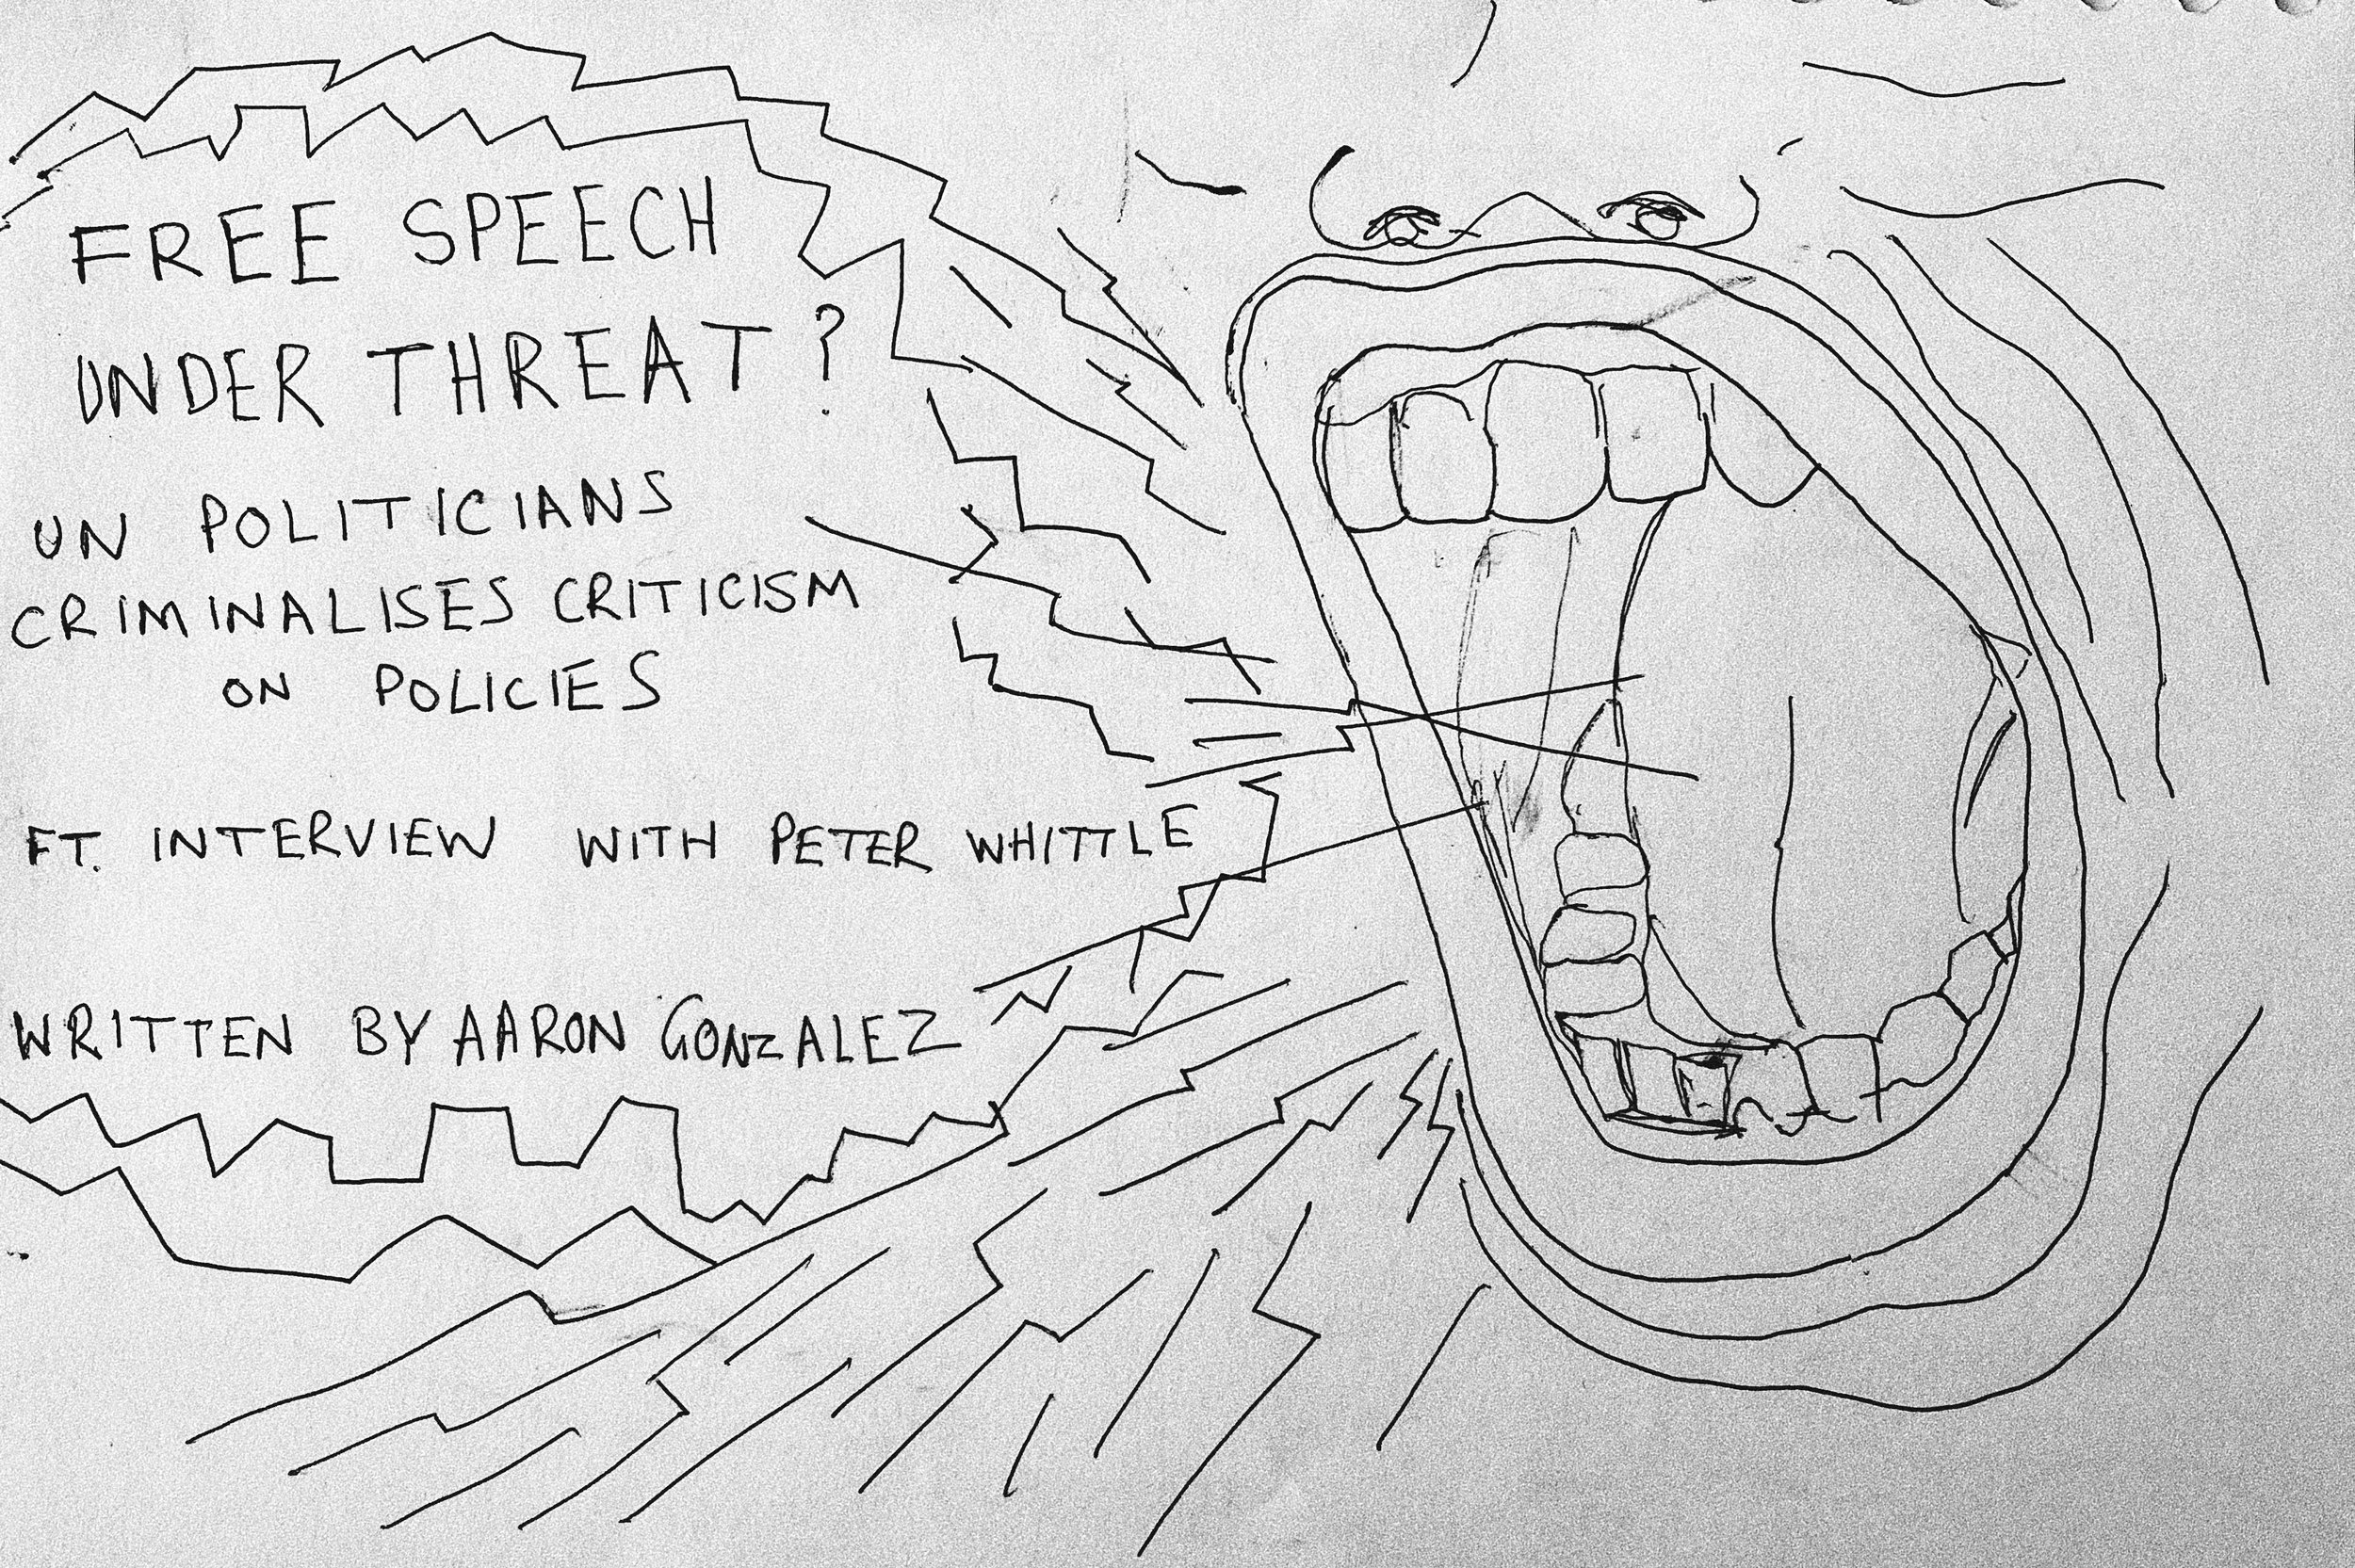 FREE SPEECH
UNDER THREAT?
UN POLITICIANS
CRIMINALISES CRITICISM
ON POLICIES
FT. INTERVIEW WITH PETER WHITTLE
WRITTEN BY AARON GONZALEZ